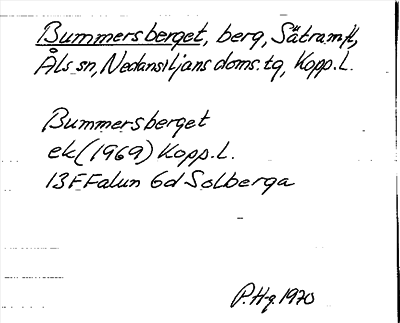 Bummersberget, berg, Sätra m.fl.,
Åls sn, Nedansiljans doms.tg, Kopp.L.
Bummersberget
ek (1969) Kopp.L.
13F Falun 6d Solberga
P.Hg. 1970